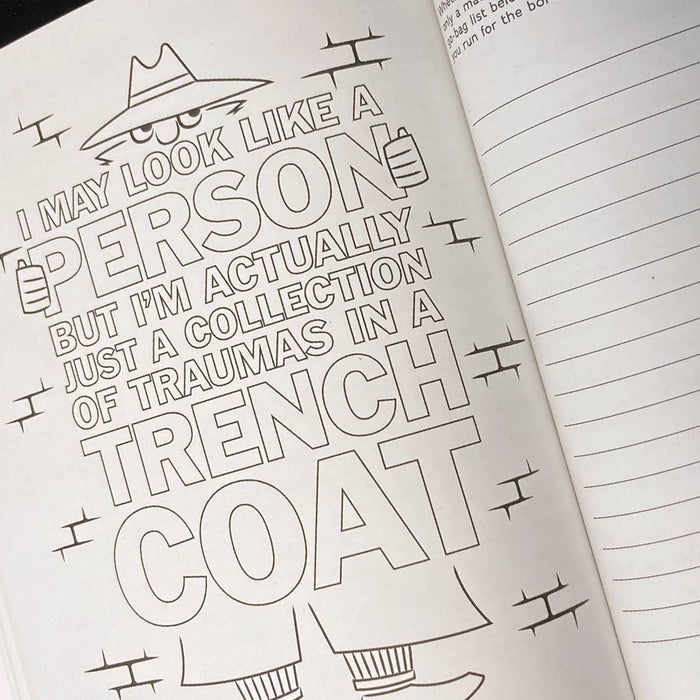 I MAY LOOK LIKE A
PERSON
BUT I'M ACTUALLY
JUST A COLLECTION
OF TRAUMAS IN A
TRENCH
COAT
only a ma
list bef
you run for the bo